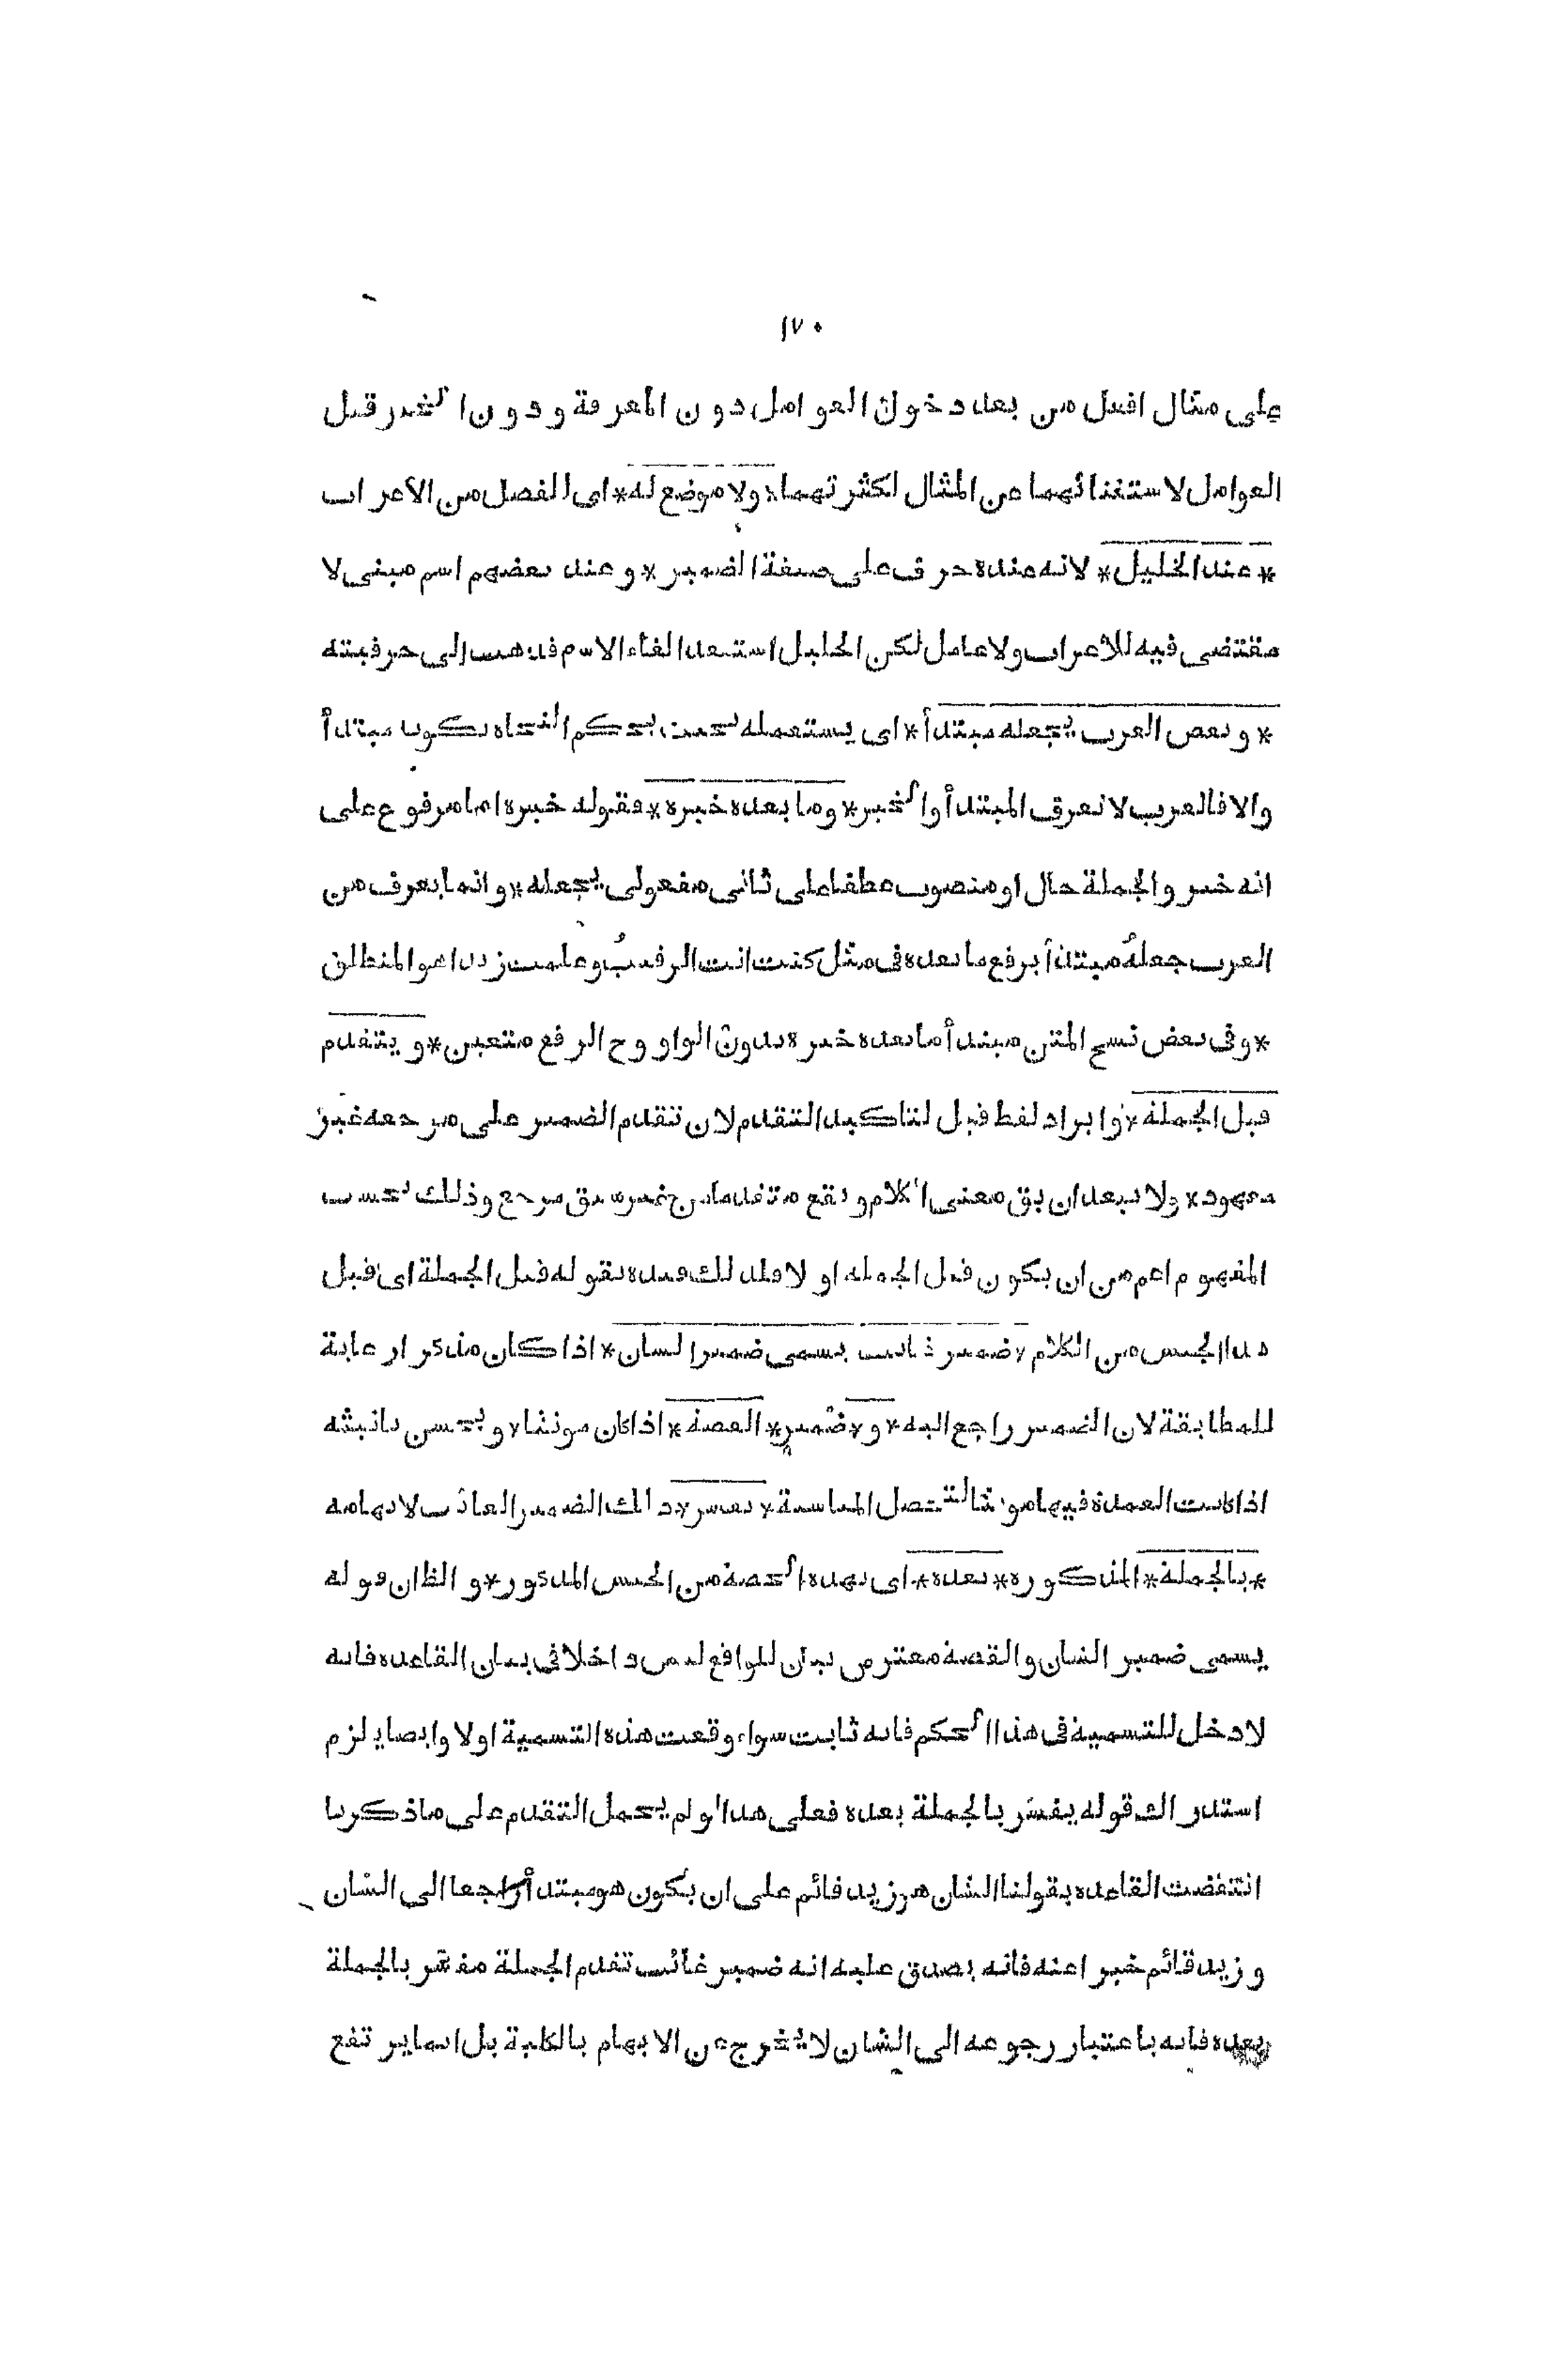 ١٧٠
على مثال افعل من بعد دخول العوامل دون المعرفة ودون الخبر قبل
العوامل لاستغنائهما عن المثال لكثرتهما * ولا موضع له * اى للفصل من الاعراب
* عند الخليل * لانه عنده حرف على صيغة الضمير * وعند بعضهم اسم مبنى لا
مقتضى فيه للأعراب ولا عامل لكن الخليل استبعد الغاء الاسم فذهب الى حرفيته
* وبعض العرب يجعله مبتدأ * اى يستعمله بحيث يحكم النحاه بكونه مبتدأ
والا فالعرب لا تعرف المبتدأ والخبر * وما بعده خبره * فقوله خبره اما مرفوع على
انه خبر والجملة حال او منصوب عطفا على ثانى مفعولى يجعله * وانما يعرف من
العرب جعلهُ مبتدأ برفع ما بعده فى مثل كنت انت الرقيبُ وعلمت زيدا هو المنطلق
* وفى بعض نسخ المتن مبتدأ ما بعده خبره بدون الواو وح الرفع متعين * ويتقدم
قبل الجملة * وايراد لفظ قبل لتاكيد التقدم لان تقدم الضمير على مرجعه غير
معهود * ولا يبعد ان يق معنى الكلام ويقع متقدما من غير سبق مرجع وذلك بحسب
المفهوم اعم من ان يكون قبل الجمله او لا فلذلك قيده بقوله قبل الجملة اى قبل
هذا الجنس من الكلام * ضمير غائب يسمى ضمير الشان * اذا كان مذكرا رعاية
للمطابقة لان الضمير راجع اليه * و * ضمير * القصة * اذا كان مونثا * ويحسن تانيثه
اذا كانت العمدة فيها مونثا لتحصل المناسبة * يفسر * ذلك الضمير الغائب لابهامه
* بالجملة * المذكوره * بعده * اى بهذه الحصة من الجنس المذكور * والظ ان قوله
يسمى ضمير الشان والقصة معترض بيان للواقع ليس داخلا فى بيان القاعده فانه
لا دخل للتسمية فى هذا الحكم فانه ثابت سواء وقعت هذه التسمية اولا وايضا يلزم
استدراك قوله يفسَّر بالجملة بعده فعلى هذا لو لم يحمل التقدم على ما ذكرنا
انتقضت القاعده بقولنا الشان هو زيد قائم على ان يكون هو مبتدأ راجعا الى الشان
وزيد قائم خبرا عنه فانه يصدق عليه انه ضمير غائب تقدم الجملة مفسَّر بالجملة
بعده فانه باعتبار رجوعه الى الشان لا يخرج عن الابهام بالكلية بل انما يرتفع